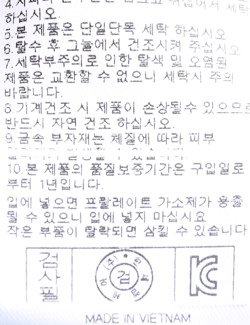 하십시오
5.본 제품은 단일단독 세탁 하십시오
6.탈수 후 그늘에서 건조시켜 주십시오
7.세탁부주의로 인한 탈색 및 오염된
제품은 교환할 수 없으니 세탁시 주의
바랍니다.
8.기계건조 시 제품이 손상될수 있으므로
반드시 자연 건조 하십시오.
9.금속 부자재는 체질에 따라 피부
10.본 제품의 품질보증기간은 구입일로
부터 1년입니다.
입에 넣으면 프탈레이트 가소제가 용출
될 수 있으니 입에 넣지 마십시요
작은 부품이 탈락되면 삼킬 수 있습니다
검사필
검
KC
MADE IN VIETNAM